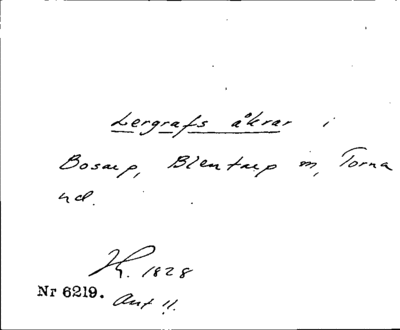 Lergrafs åkrar i
Bosarp, Blentarp m, Torna
hd.
K. 1828
Nr 6219. Ant 11.